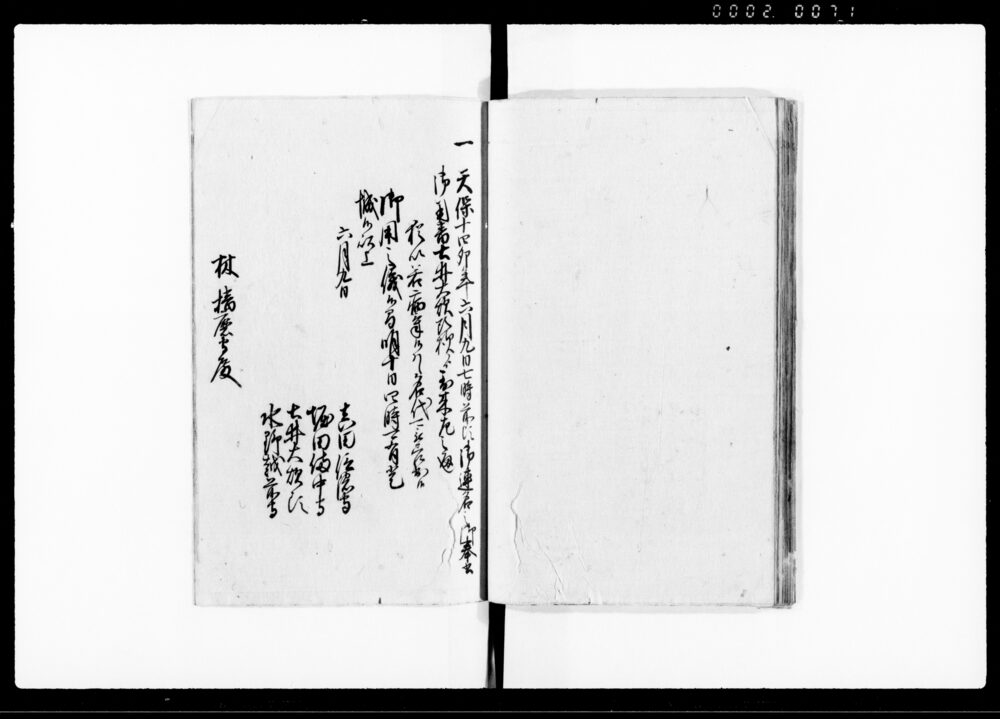 0002 0071
一 天保十四卯年六月九日七時前比御連名之御奉書
御用番土井大炊頭様ゟ到来左之通
御用之儀候間明十日四時可有登
城候以上
六月九日
真田信濃守
堀田備中守
土井大炊頭
水野越前守
林播磨守殿